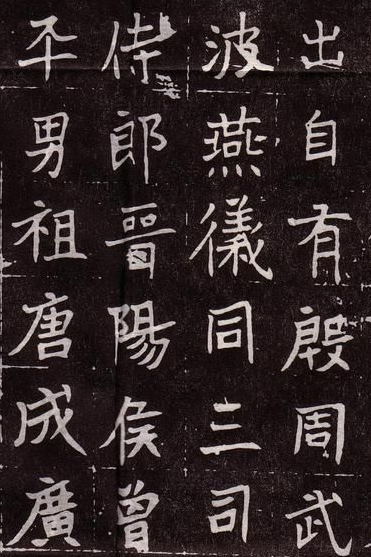 出自有殷周武
波燕儀同三司
侍郎晉陽侯曾
平男祖唐成廣